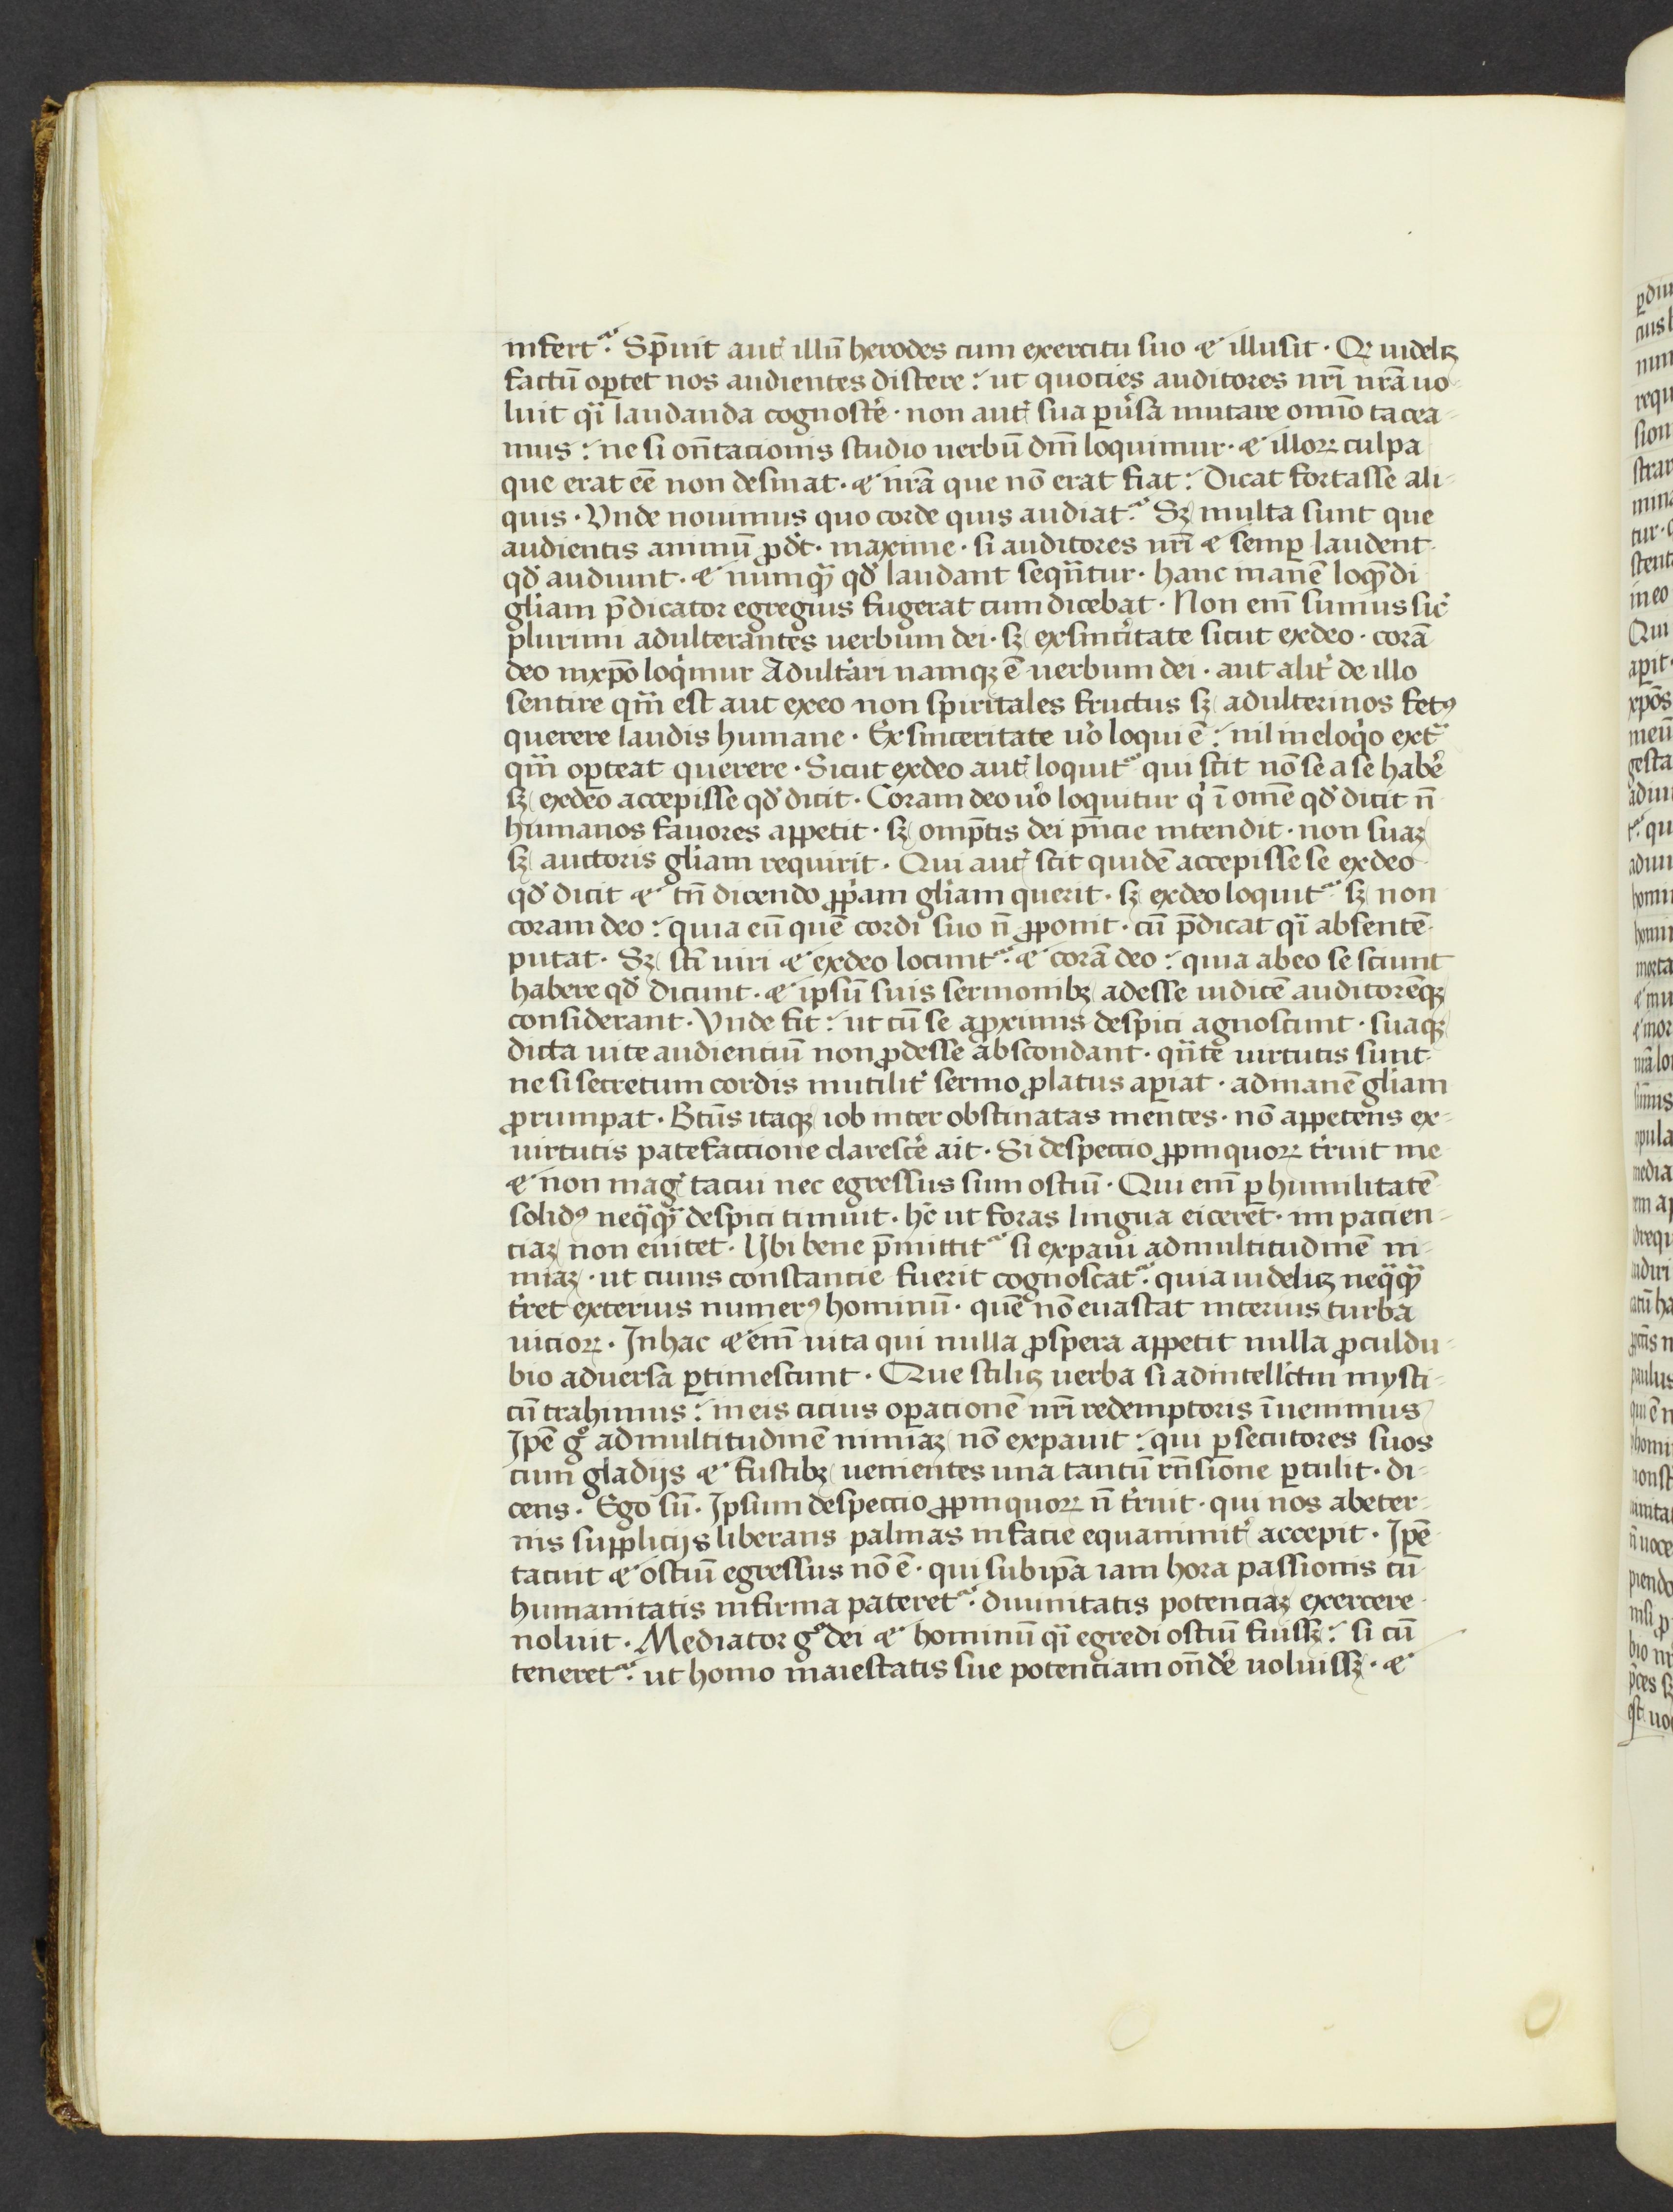 infert᷑. Sp̄uit aut̾ illū herodes cum exercitu suo & illusit. Qr̄ uidelꝫ
factū oꝑtet nos audientes discere: ut quocies auditores nr̄i nrā uo-
luit qͣi laudanda cognosce̾. non aut̾ sua ꝑue̾sa mutare omīo tacea-
mus: ne si on̄tacionis studio uerbū dn̄i loquimur. & illoꝝ culpa
que erat eē non desinat. & nr̄a que nō erat fiat: Dicat fortasse ali-
quis. Vnde nouimus quo corde quis audiat᷑. Sꝫ multa sunt que
audientis animū ꝓdt̄. maxime. si auditores nr̄i & semꝑ laudent
qd̾ audiunt. & numqͣ qd̾ laudant sequn̄tur. hanc inanē loquēdi
gl̾iam p̄dicator egregius fugerat cum dicebat. Non em̄ sumus sic̾
plurimi adulterantes uerbum dei. sꝫ exsince̾itate sicut exdeo. corā
deo inxp̄o loqͥmur Adult̾ari namqꝫ ē uerbum dei. aut alit̾ de illo
sentire qm̄ est aut exeo non spiritales fructus sꝫ adulterinos fetꝰ
querere laudis humane. Ex sinceritate uͦo loqui ē: nil ineloqͥo extͣ
qm̄ oꝑteat querere. Sicut exdeo aut̾ loquit᷑ qui scit nō se a se habe̾
sꝫ exdeo accepisse qd̾ dicit. Coram deo uͦo loquitur qͥ ī omē qd̾ dicit n̄
humanos fauores appetit. sꝫ omp̄tis dei pn̄cie intendit. non suaꝫ
sꝫ auctoris gl̾iam requirit. Qui aut̾ scit quidē accepisse se exdeo
qd̾ dicit & tn̄ dicendo ꝓpͥam gl̾iam querit. sꝫ exdeo loquit᷑ sꝫ non
coram deo: quia eū quē cordi suo n̄ ꝓponit. cū p̄dicat qͣi absentē
putat. Sꝫ sc̄i uiri & exdeo locunt᷑. & corā deo: quia abeo se sciunt
habere qd̾ dicunt. & ipsū suis sermonibꝫ adesse iudicē auditorēqꝫ
considerant. Vnde fit: ut cū se aꝓximis despici agnoscunt. suaqꝫ
dicta uite audienciū non ꝓdesse abscondant. qn̄te uirtutis sunt
ne si secretum cordis inutilit̾ sermo ꝓlatus aꝑiat. adinanē gl̾iam
ꝓrumpat. Btūs itaqꝫ iob inter obstinatas mentes. nō appetens ex-
uirtutis patefaccione claresce̾ ait. Si despeccio ꝓpinquoꝝ t̾ruit me
& non mag̾ tacui nec egressus sum ostiū. Qui em̄ ꝑ humilitatē
solidꝰ neqͣqͣ despici timuit. hc̄ ut foras lingua eiceret. impacien-
ciaꝫ non euitet. Vbi bene p̄mittit᷑ si expaui admultitudinē ni-
miaꝫ. ut cuius constancie fuerit cognoscat᷑. quia uidelꝫ neqͣqͣ
t̾ret exterius numerꝰ hominū. quē nō euastat interius turba
uicioꝝ. Inhac & em̄ uita qui nulla ꝓspera appetit nulla ꝓculdu-
bio aduersa ꝑtimescunt. Que scilꝫ uerba si adintellc̄tm misti-
cū trahimus: ineis cicius oꝑacionē nr̄i redemptoris īuenimus
Ipē gͦ admultitudinē nimiaꝫ nō expauit: qui ꝑsecutores suos
cum gladijs & fustibꝫ uenientes una tantū rn̄sione ꝑtulit. di-
cens. Ego sū. Ipsum despeccio ꝓpinquoꝝ n̄ t̾ruit. qui nos abeter-
nis supplicijs liberans palmas infacie equanimit̾ accepit. Ipē
tacuit & ostiū egressus nō ē. qui subip̄a iam hora passionis cū
humanitatis infirma pateret᷑. diuinitatis potenciaꝫ exercere
noluit. Mediator gͦ dei & hominū qͣi egredi ostiū fuissꝫ: si cū
teneret᷑. ut homo maiestatis sue potenciam on̄de̾ uoluissꝫ. &